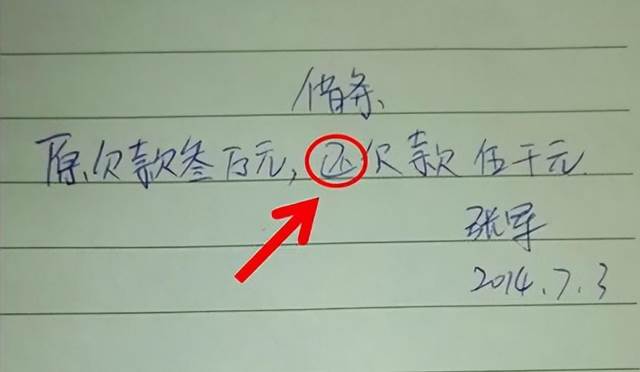 借条
原欠款叁万元,还欠款伍千元.
张军
2014.7.3